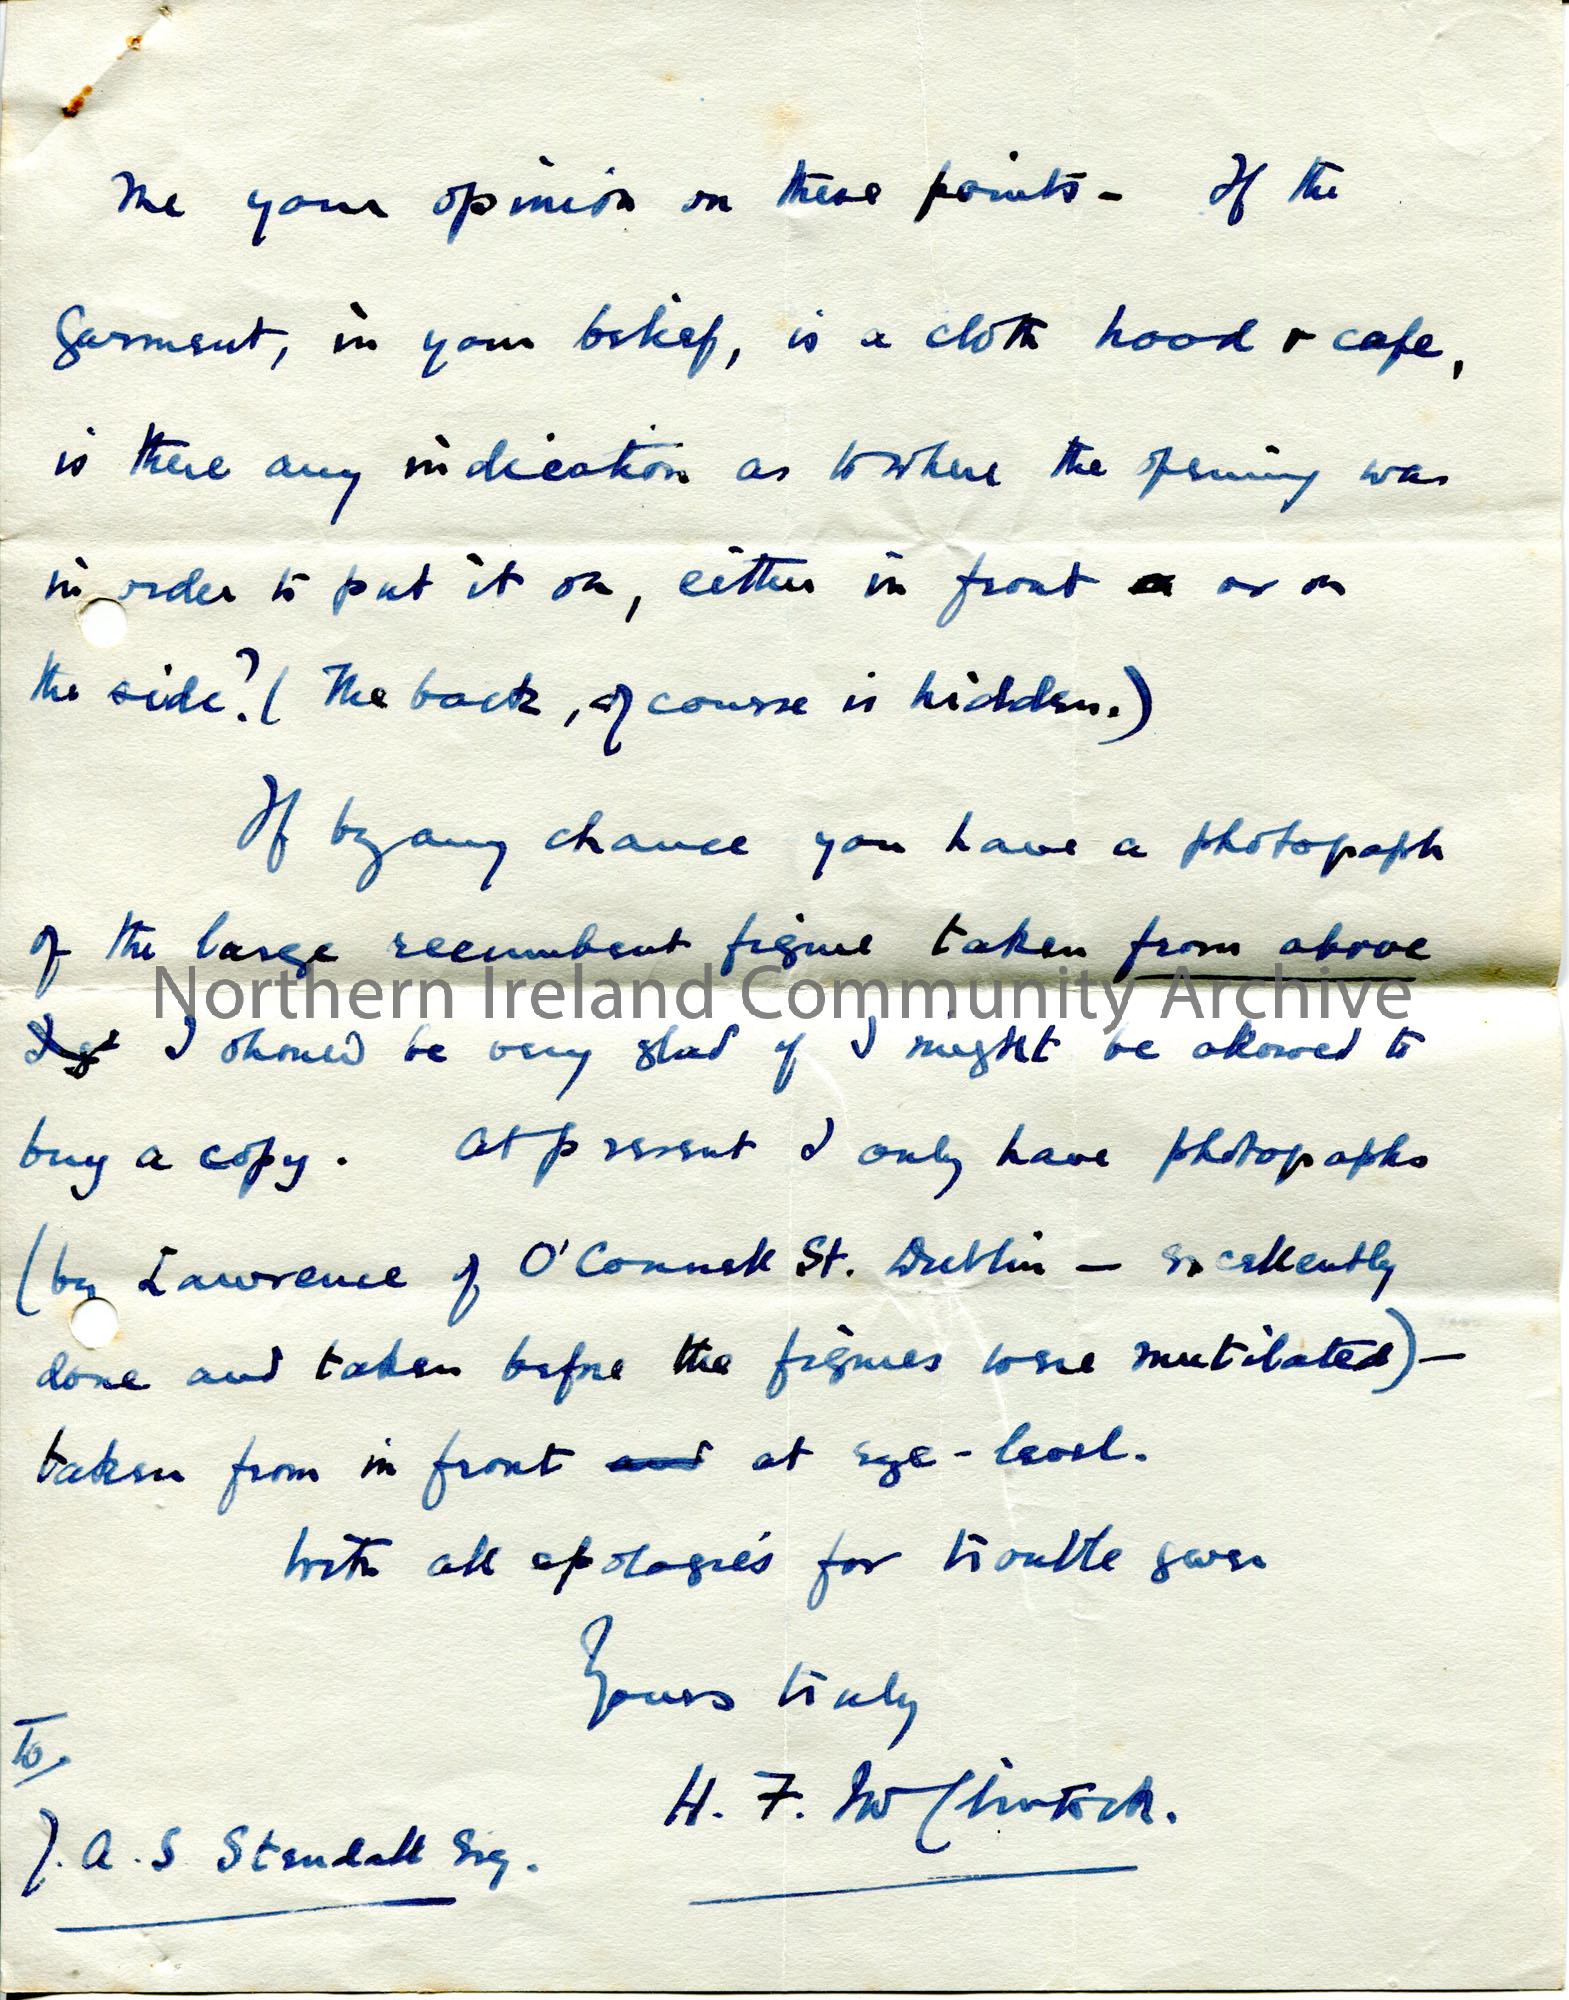 me your opinion on these points – If the
garment, in your belief, is a cloth hood & cape,
is there any indication as to where the opening was
in order to put it on, either in front or on
the side? (The back, of course is hidden.)
If by any chance you have a photograph
of the large recumbent figure taken from above
Northern Ireland Community Archive
I should be very glad if I might be allowed to
buy a copy. At present I only have photographs
(by Lawrence of O'Connell St. Dublin – excellently
done and taken before the figures were mutilated) –
taken from in front and at eye-level.
With all apologies for trouble given
Yours truly
H. F. McClintock.
To
J. A. S Stendall Esq.